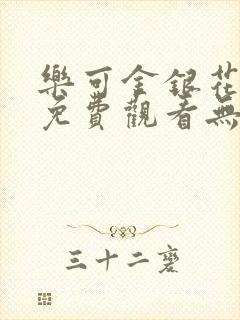 樂可金銀花
免費觀看無
三十二磨